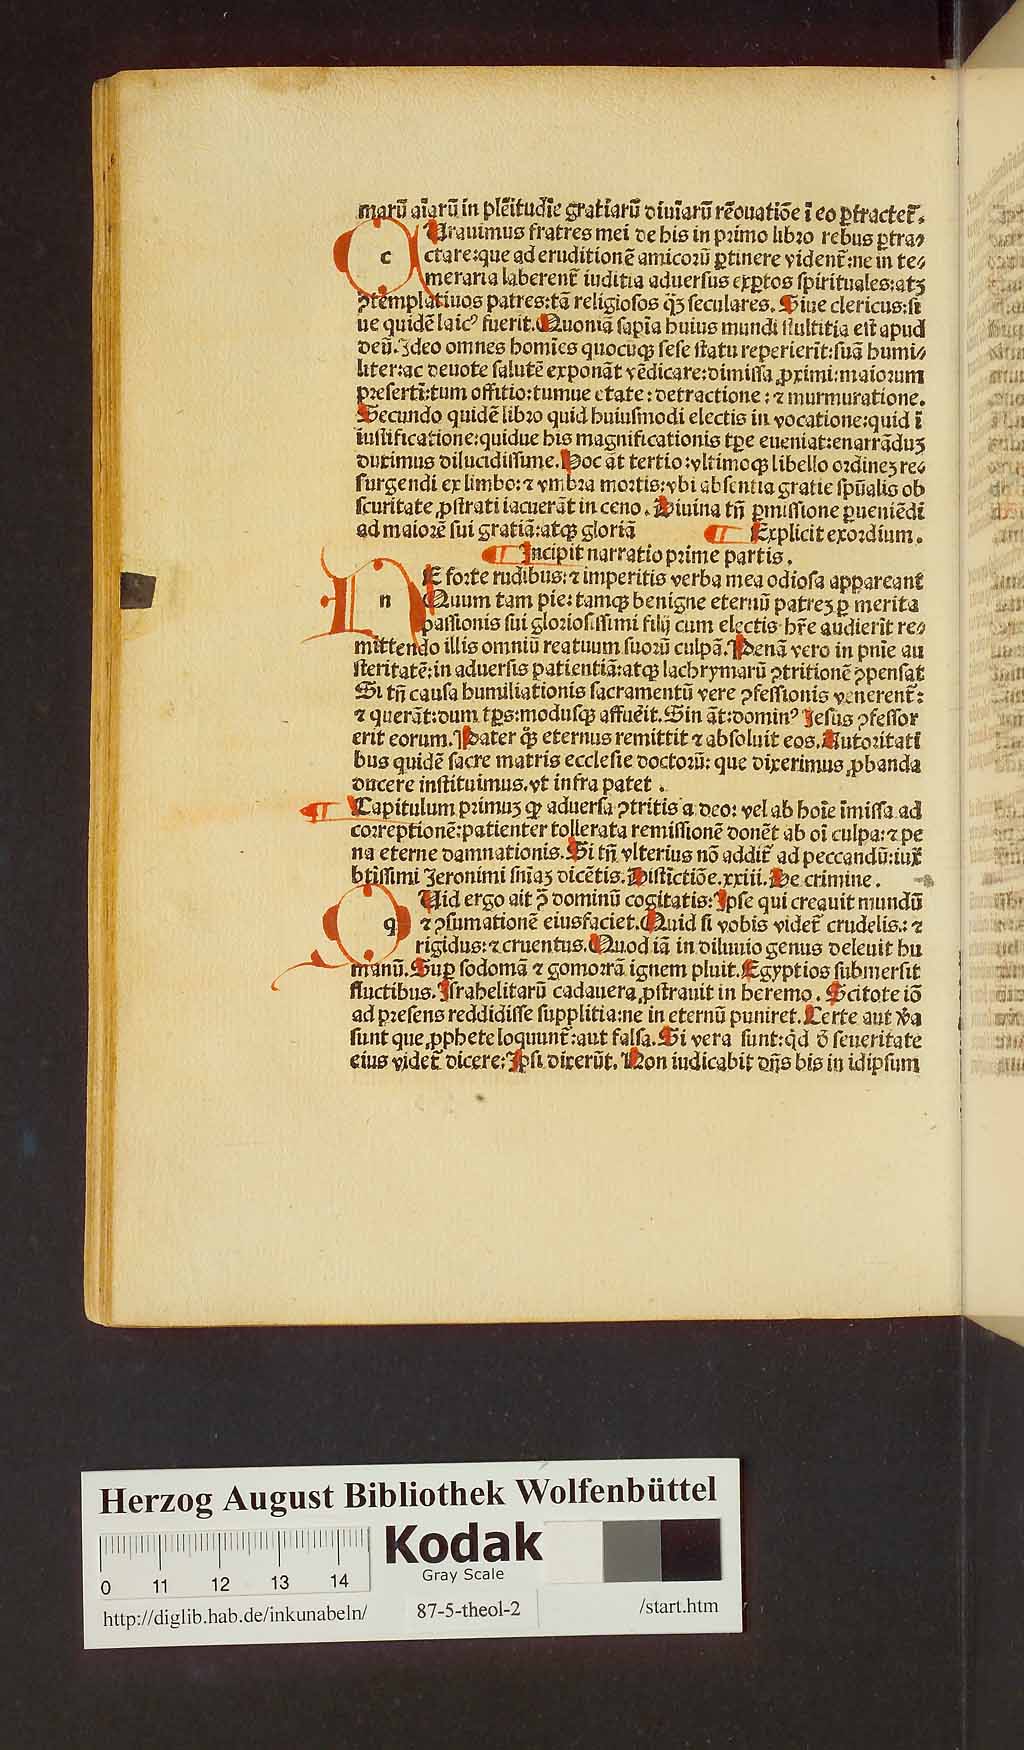 marū aīarū in plēitudīe gratīarū diuīarū rēouatiōe ī eo ꝑtractet̄.
cUrauimus fratres mei de his in primo libro rebus ꝑtra-
ctare: que ad eruditionē amicorū ꝑtinere vident̄: ne in te-
meraria laberent̄ iuditia aduersus exꝑtos spirituales: atꝫ
ꝯtēplatiuos patres: tā religiosos qꝫ̄ seculares. Siue clericus: si
ue quidē laicꝰ fuerit. Quoniā sapīa huius mundi stultitia est apud
deū. Ideo omnes homīes quocūqꝫ sese statu reperierīt: suā humi-
liter: ac deuote salutē exponāt vēdicare: dimissa ꝓximi: maiorum
presertī: tum offitio: tumue etate: detractione: ⁊ murmuratione.
Secundo quidē libro quid huiusmodi electis in vocatione: quid ī
iustificatione: quidue his magnificationis tꝑe eueniat: enarrāduꝫ
duximus dilucidissime. Hoc āt tertio: vltimoqꝫ libello ordineꝫ re-
surgendi ex limbo: ⁊ vmbra mortis: vbi absentia gratie spūalis ob
scuritate ꝓstrati iacuerāt in ceno. Diuina tn̄ ꝑmissione ꝑueniēdi
ad maiorē sui gratiā: atqꝫ gloriā ¶ Explicit exordium.
¶ Incipit narratio prime partis.
nE forte rudibus: ⁊ imperitis verba mea odiosa appareant
Quum tam pie: tamqꝫ benigne eternū patreꝫ ꝑ merita
passionis sui gloriosissimi filij cum electis hr̄e audierīt re-
mittendo illis omniū reatuum suorū culpā. Penā vero in pnīe au
steritatē: in aduersis patientiā: atqꝫ lachrymarū ꝯtritionē ꝯpensat
Si tn̄ causa humiliationis sacramentū vere ꝯfessionis venerent̄:
⁊ querāt: dum tꝑs: modusqꝫ affuēit. Sin āt: dominꝰ Jesus ꝯfessor
erit eorum. Pater qꝫ̄ eternus remittit ⁊ absoluit eos. Autoritati
bus quidē sacre matris ecclesie doctorū: que dixerimus ꝓbanda
ducere instituimus. vt infra patet.
¶ Capitulum primuꝫ ꝙ aduersa ꝯtritis a deo: vel ab hoīe īmissa ad
correptionē: patienter tollerata remissionē donēt ab oī culpa: ⁊ pe
na eterne damnationis. Si tn̄ vlterius nō addit̄ ad peccandū: iux̄
btissimi Jeronimi snīaꝫ dicētis. Distictiōe. xxiii. De crimine.
qUid ergo ait ꝯ̄ dominū cogitatis: Ipse qui creauit mundū
⁊ ꝯsumationē eius faciet. Quid si vobis videt̄ crudelis: ⁊
rigidus: ⁊ cruentus. Quod iā in diluuio genus deleuit hu
manū. Suꝑ sodomā ⁊ gomorrā ignem pluit. Egyptios submersit
fluctibus. Israhelitarū cadauera ꝓstrauit in heremo. Scitote iō
ad presens reddidisse supplitia: ne in eternū puniret. Certe aut v̄a
sunt que ꝓphete loquunt̄: aut falsa. Si vera sunt: qd̄ d̄ seueritate
eius videt̄ dicere: Ipsi dixerūt. Non iudicabit dn̄s bis in idipsum
Herzog August Bibliothek Wolfenbüttel
Kodak
Gray Scale
0 11 12 13 14
http://diglib.hab.de/inkunabeln/ 87-5-theol-2 /start.htm